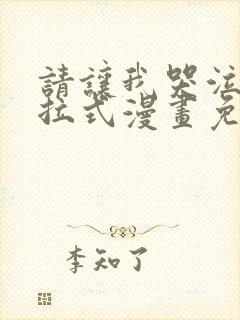 請讓我哭泣
拉式漫畫免
李知了